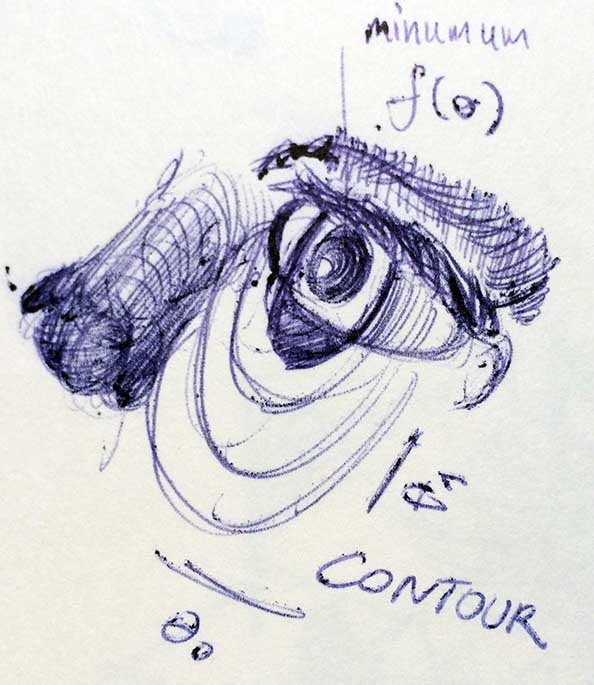 minumum
f(θ)
θ₁
CONTOUR
θ₀